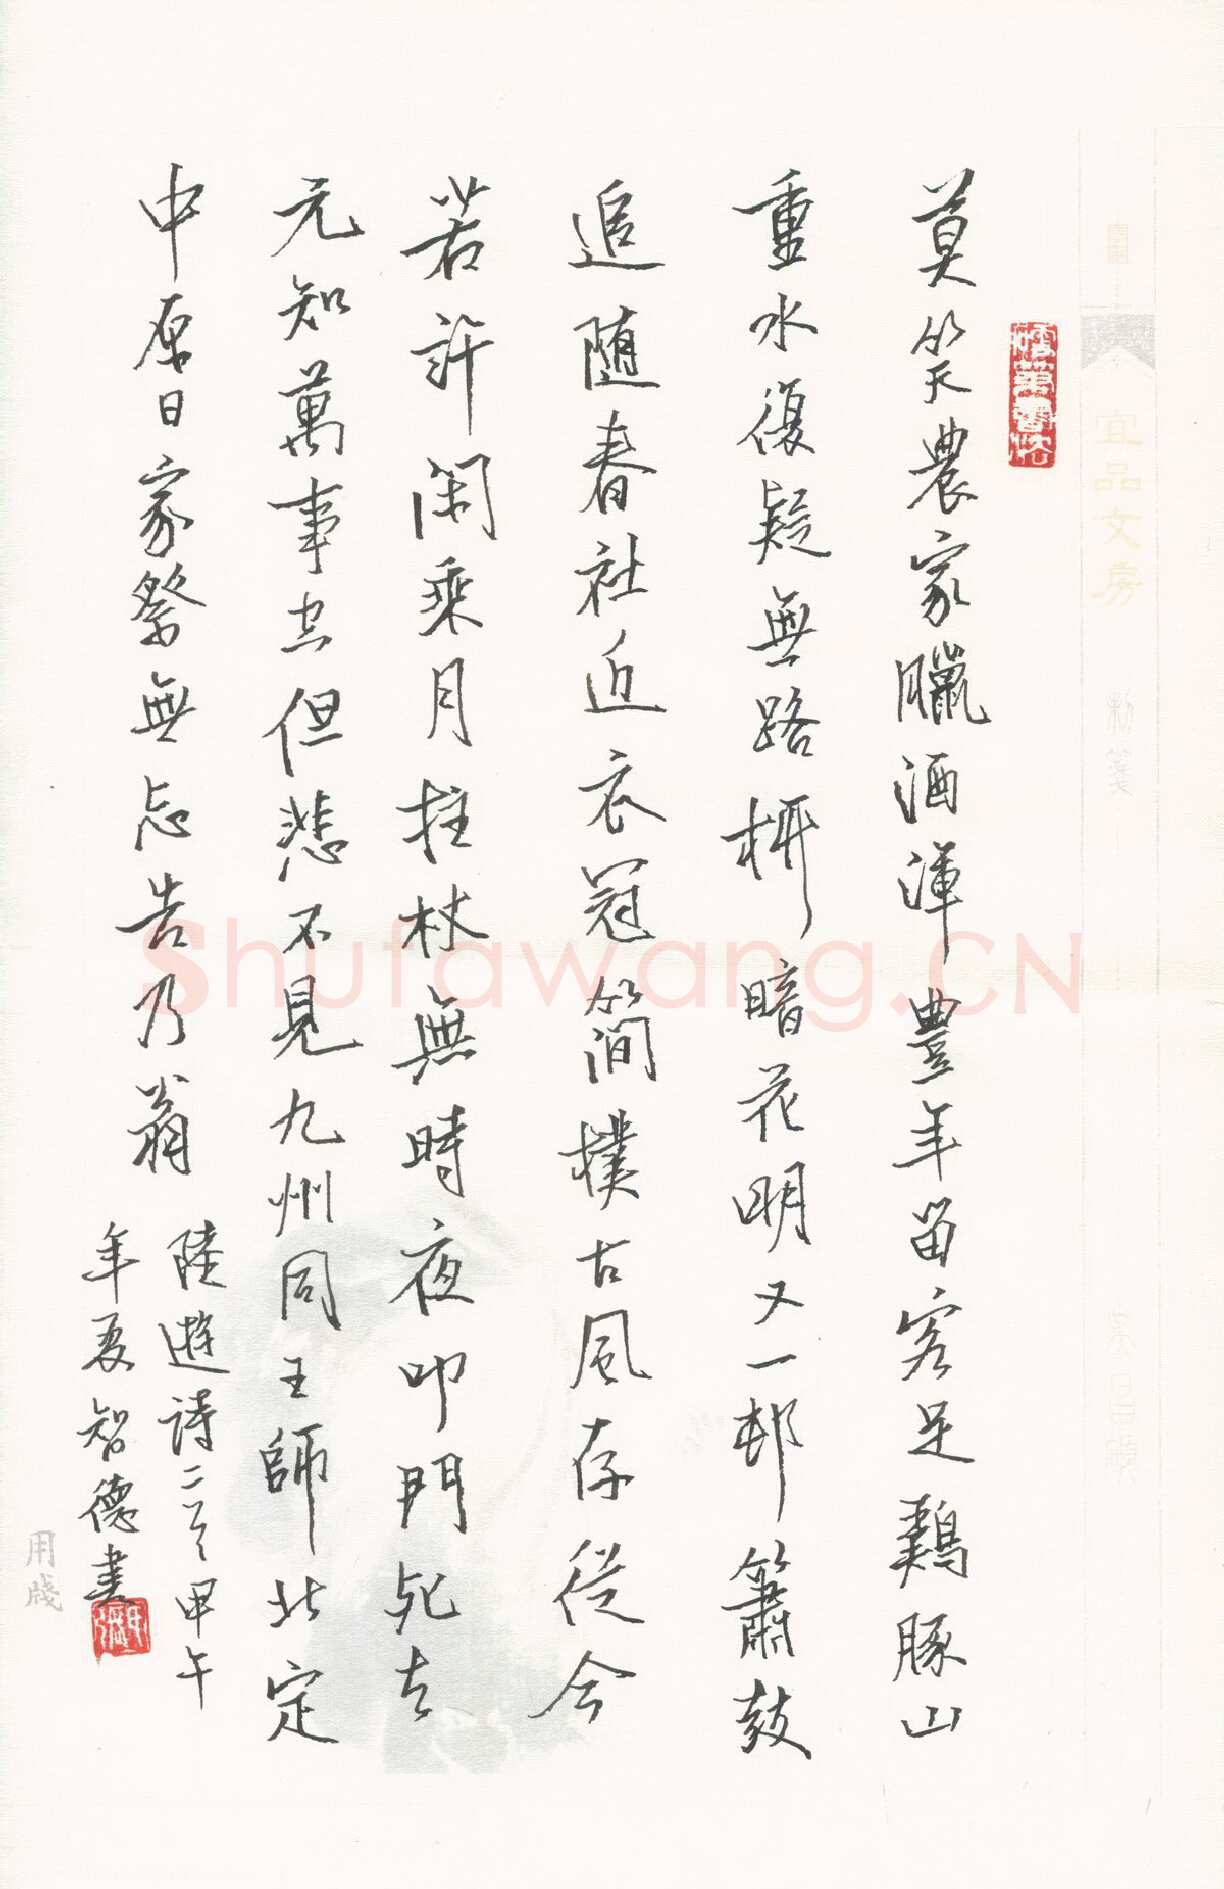 莫笑農家臘酒渾豐年留客足鷄豚山
重水復疑無路柳暗花明又一邨簫鼓
追随春社近衣冠簡樸古風存從今
若許閑乘月拄杖無時夜叩門死去
元知萬事空但悲不見九州同王師北定
中原日家祭無忘告乃翁
陸遊詩二首甲午
年夏智德書
宜品文房
制箋
用牋
Shufawang.CN